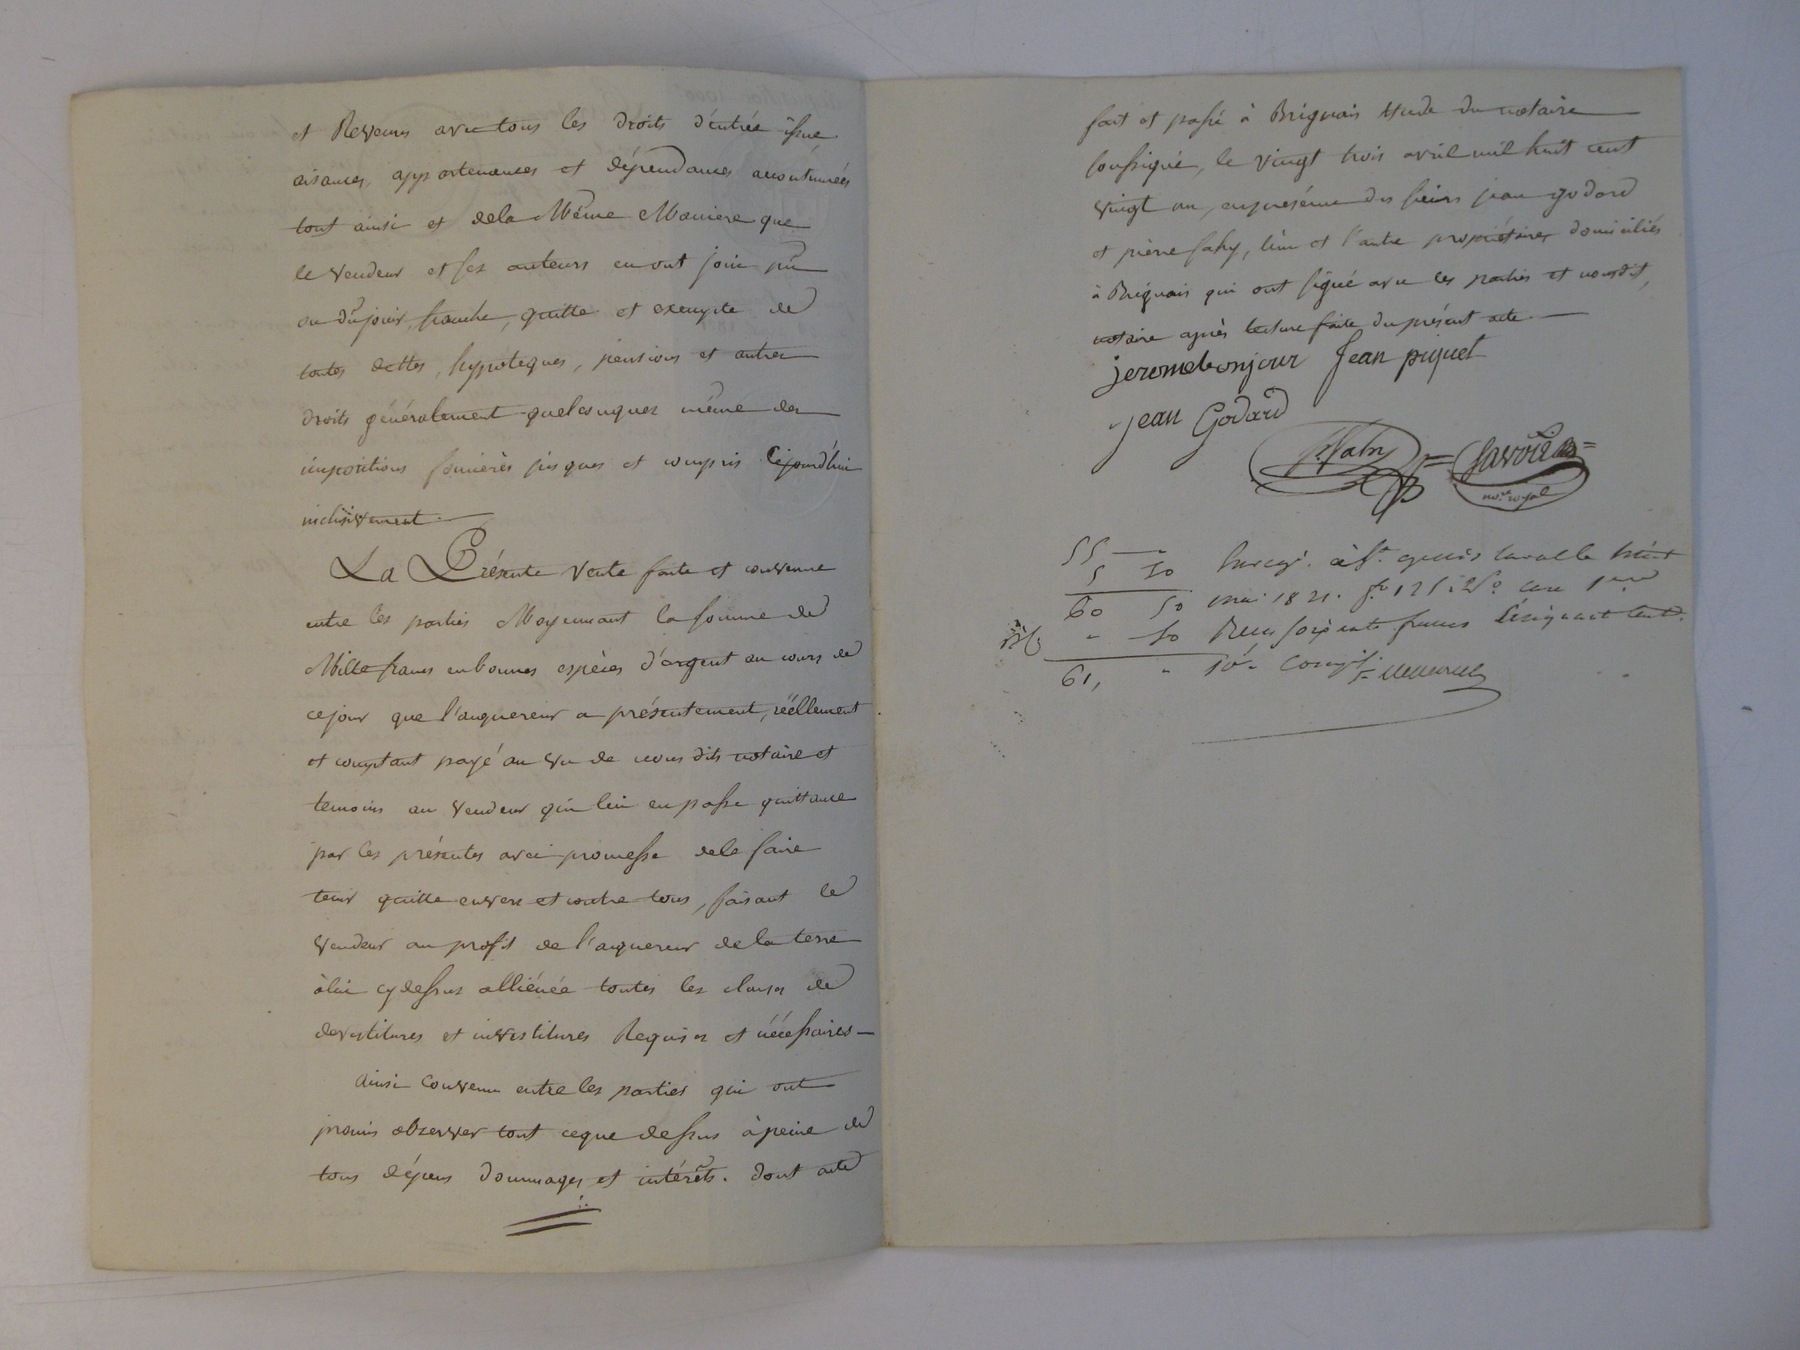 et Revenus avec tous les droits d'entrée issue
aisances, appartenances et dépendances accoutumées
tout ainsi et de la Même Maniere que
le vendeur et ses auteurs en ont joui pû
ou dû jouir, franche, quitte et exempte de
toutes dettes, hypoteques, pensions et autres
droits généralement quelconques même des
impositions foncières jusques et compris Cejourd'hui
inclusivement.
La Présente Vente faite et convenue
entre les parties Moyennant la somme de
Mille francs en bonnes espèces d'argent au cours de
ce jour que l'acquereur a présentement, réellement
et comptant payé au vu de nous dits notaire et
temoins au vendeur qui lui en passe quittance
par les présentes avec promesse de le faire
tenir quitte envers et contre tous, faisant le
vendeur au profit de l'acquereur de la terre
à lui cy dessus alliénée toutes les clauses de
devestitures et investitures Requises et nécessaires
Ainsi Convenu entre les parties qui ont
promis observer tout ce que dessus à peine de
tous dépens dommages et intérêts. Dont acte
fait et passé à Brignais étude du notaire
soussigné, le vingt trois avril mil huit cent
vingt un, en présence des sieurs jean godard
et pierre faby, l'un et l'autre propriétaires domiciliés
à Brignais qui ont signé avec les parties et nousdit,
notaire après lecture faite du présent acte.
jerome bonjour Jean piquet
jean Godard
Savoie
no.re royal
55 —
5 50
60 50
" 50
61, "
Enreg. à St. genis Laval le huit
mai 1821. fo. 125 Vo. case 1ere
Recu soixante francs